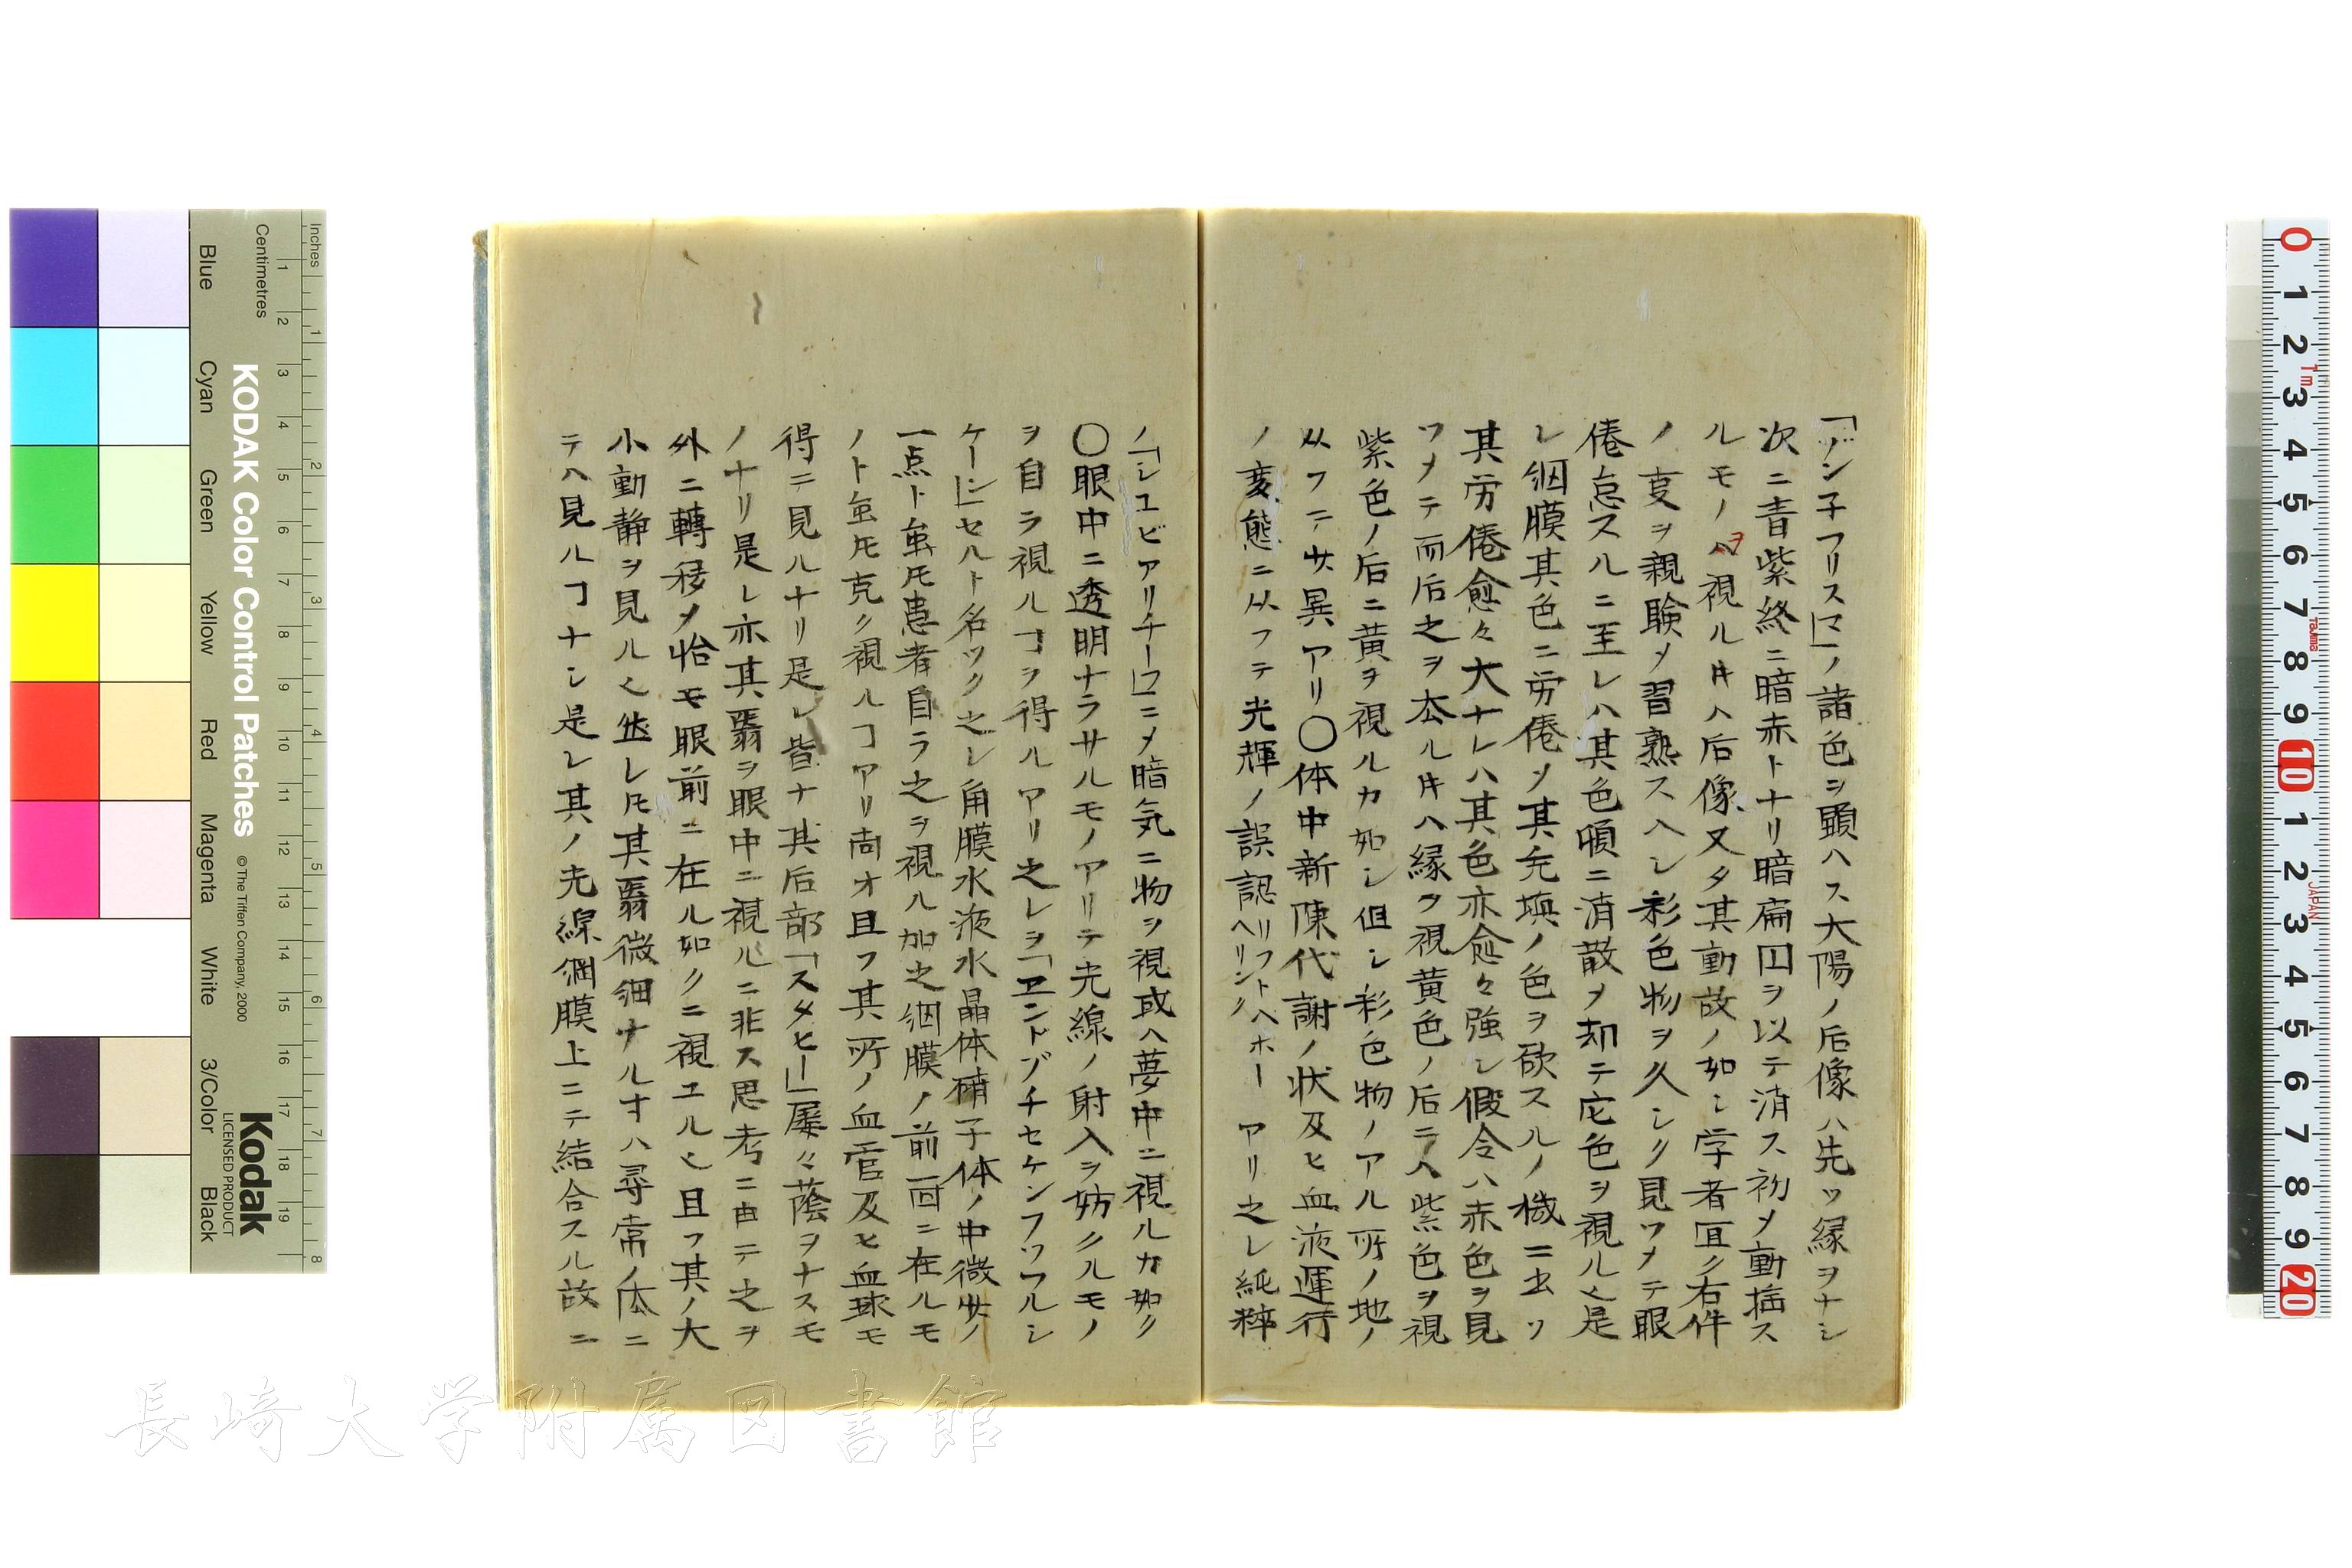 「アン子フリスマ」ノ諸色ヲ顕ハス大陽ノ后像ハ先ツ緑ヲナシ
次ニ青紫終ニ暗赤トナリ暗扁囚ヲ以テ消ス初メ動揺ス
ルモノヲ視ル𪜈ハ后像又タ其動故ノ如シ学者冝ク右件
ノ叓ヲ親験メ習熟スヘシ彩色物ヲ久シク見ツメテ眼
倦怠スルニ至レハ其色頓ニ消散メ却テ它色ヲ視ル也是
レ網膜其色ニ労倦メ其充填ノ色ヲ欲スルノ機ニ出ツ
其労倦愈々大ナレハ其色亦愈々強シ假令ハ赤色ヲ見
ツメテ而后之ヲ去ル寸ハ緑ヲ視黄色ノ后ニハ紫色ヲ視
紫色ノ后ニ黄ヲ視ルカ如シ但シ彩色物ノアル所ノ地ノ
从フテ少異アリ〇体中新陳代謝ノ状及ヒ血液運行
ノ変態ニ从フテ光輝ノ誤認 リフトヘホーヘリング アリ之レ純粹
ノ「シユビアリチーフ」ニメ暗気ニ物ヲ視或ハ夢中ニ視ルカ如ク
〇眼中ニ透明ナラサルモノアリテ光線ノ射入ヲ妨クルモノ
ヲ自ラ視ルヿヲ得ルアリ之レヲ「ヱニドヅチセケンフツワルシ
ケーン」セルト名ツク之レ角膜水液水晶体硝子体ノ中微少ノ
一点ト虽𪜈患者自ラ之ヲ視ル加之網膜ノ前面ニ在ルモ
ノト虽𪜈克ク視ルヿアリ尚オ且フ其所ノ血管及ヒ血球モ
得テ見ルナリ是レ皆ナ其后部「スタヒー」屡々蔭ヲナスモ
ノナリ是レ亦其翳ヲ眼中ニ視ルニ非ス思考ニ由テ之ヲ
外ニ轉移メ恰モ眼前ニ在ル如クニ視ユル也且フ其ノ大
小動静ヲ見ル也然レ𪜈其翳微細ナルオハ尋常ノ体ニ
テハ見ルヿナシ是レ其ノ光線網膜上ニテ結合スル故ニ
Inches
Centimetres
KODAK Color Control Patches
© The Tiffen Company, 2000
Kodak
LICENSED PRODUCT
Blue
Cyan
Green
Yellow
Red
Magenta
White
3/Color
Black
長崎大学附属図書館